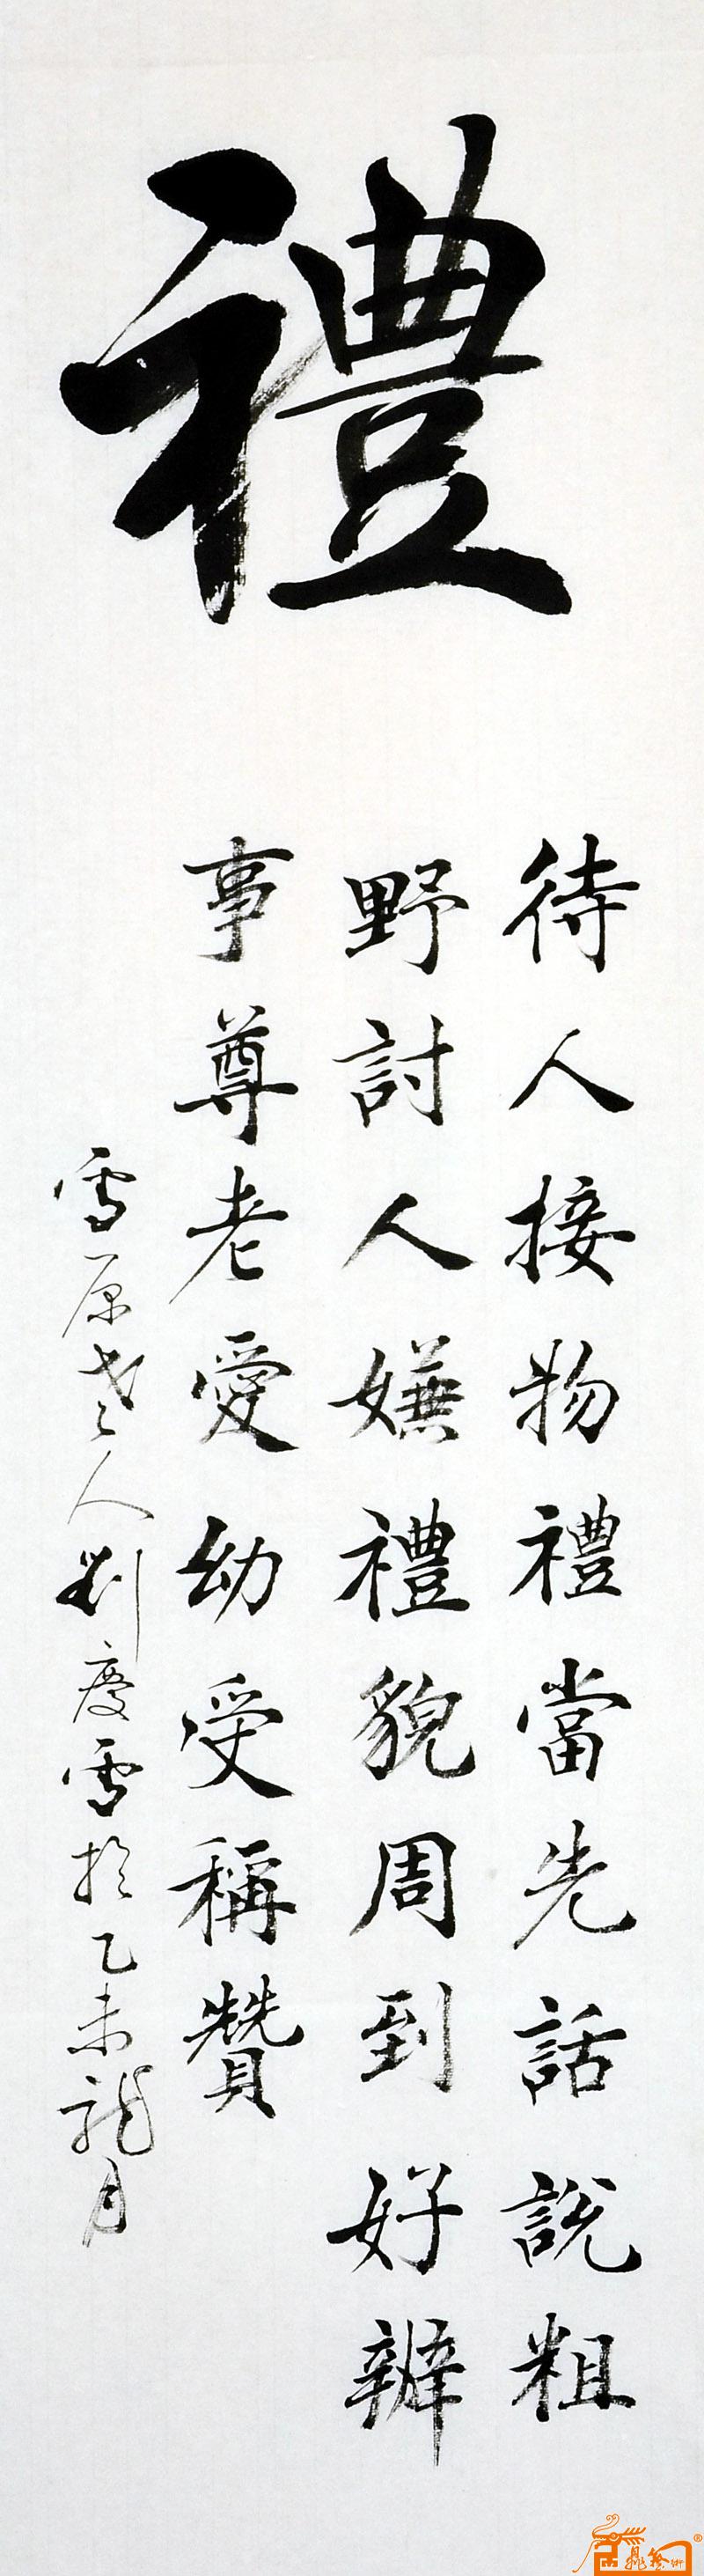 禮
待人接物禮當先話說粗
野討人嫌禮貌周到好辦
事尊老愛幼受稱贊
雪原老人劉慶雪於乙未龍月